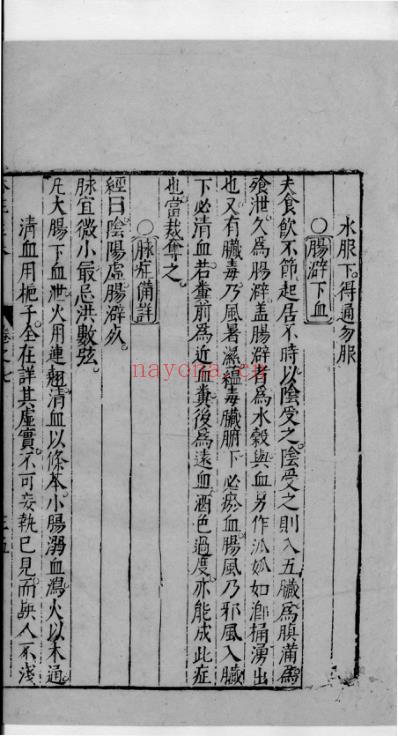 水服下得通勿服
○腸澼下血
夫食飲不節起居不時以陰受之陰受之則入五臟為䐜滿為
飱泄久為腸澼盖腸澼者為水糓與血另作㳒㳒如㴥桶湧出
也又有臟毒乃風暑濕蘊毒臟腑下必瘀血腸風乃邪風入臟
下必清血若糞前為近血糞後為遠血酒色過度亦能成此症
也當裁奪之
○脉症備詳
經曰陰陽虛腸澼㱙
脉宜微小最忌洪數弦
凡大腸下血泄火用連翹清血以條芩小腸溺血瀉火以木通
清血用梔子全在詳其虛實不可妄執已見而䛇人不淺
卷之七
三五
nayona.cn